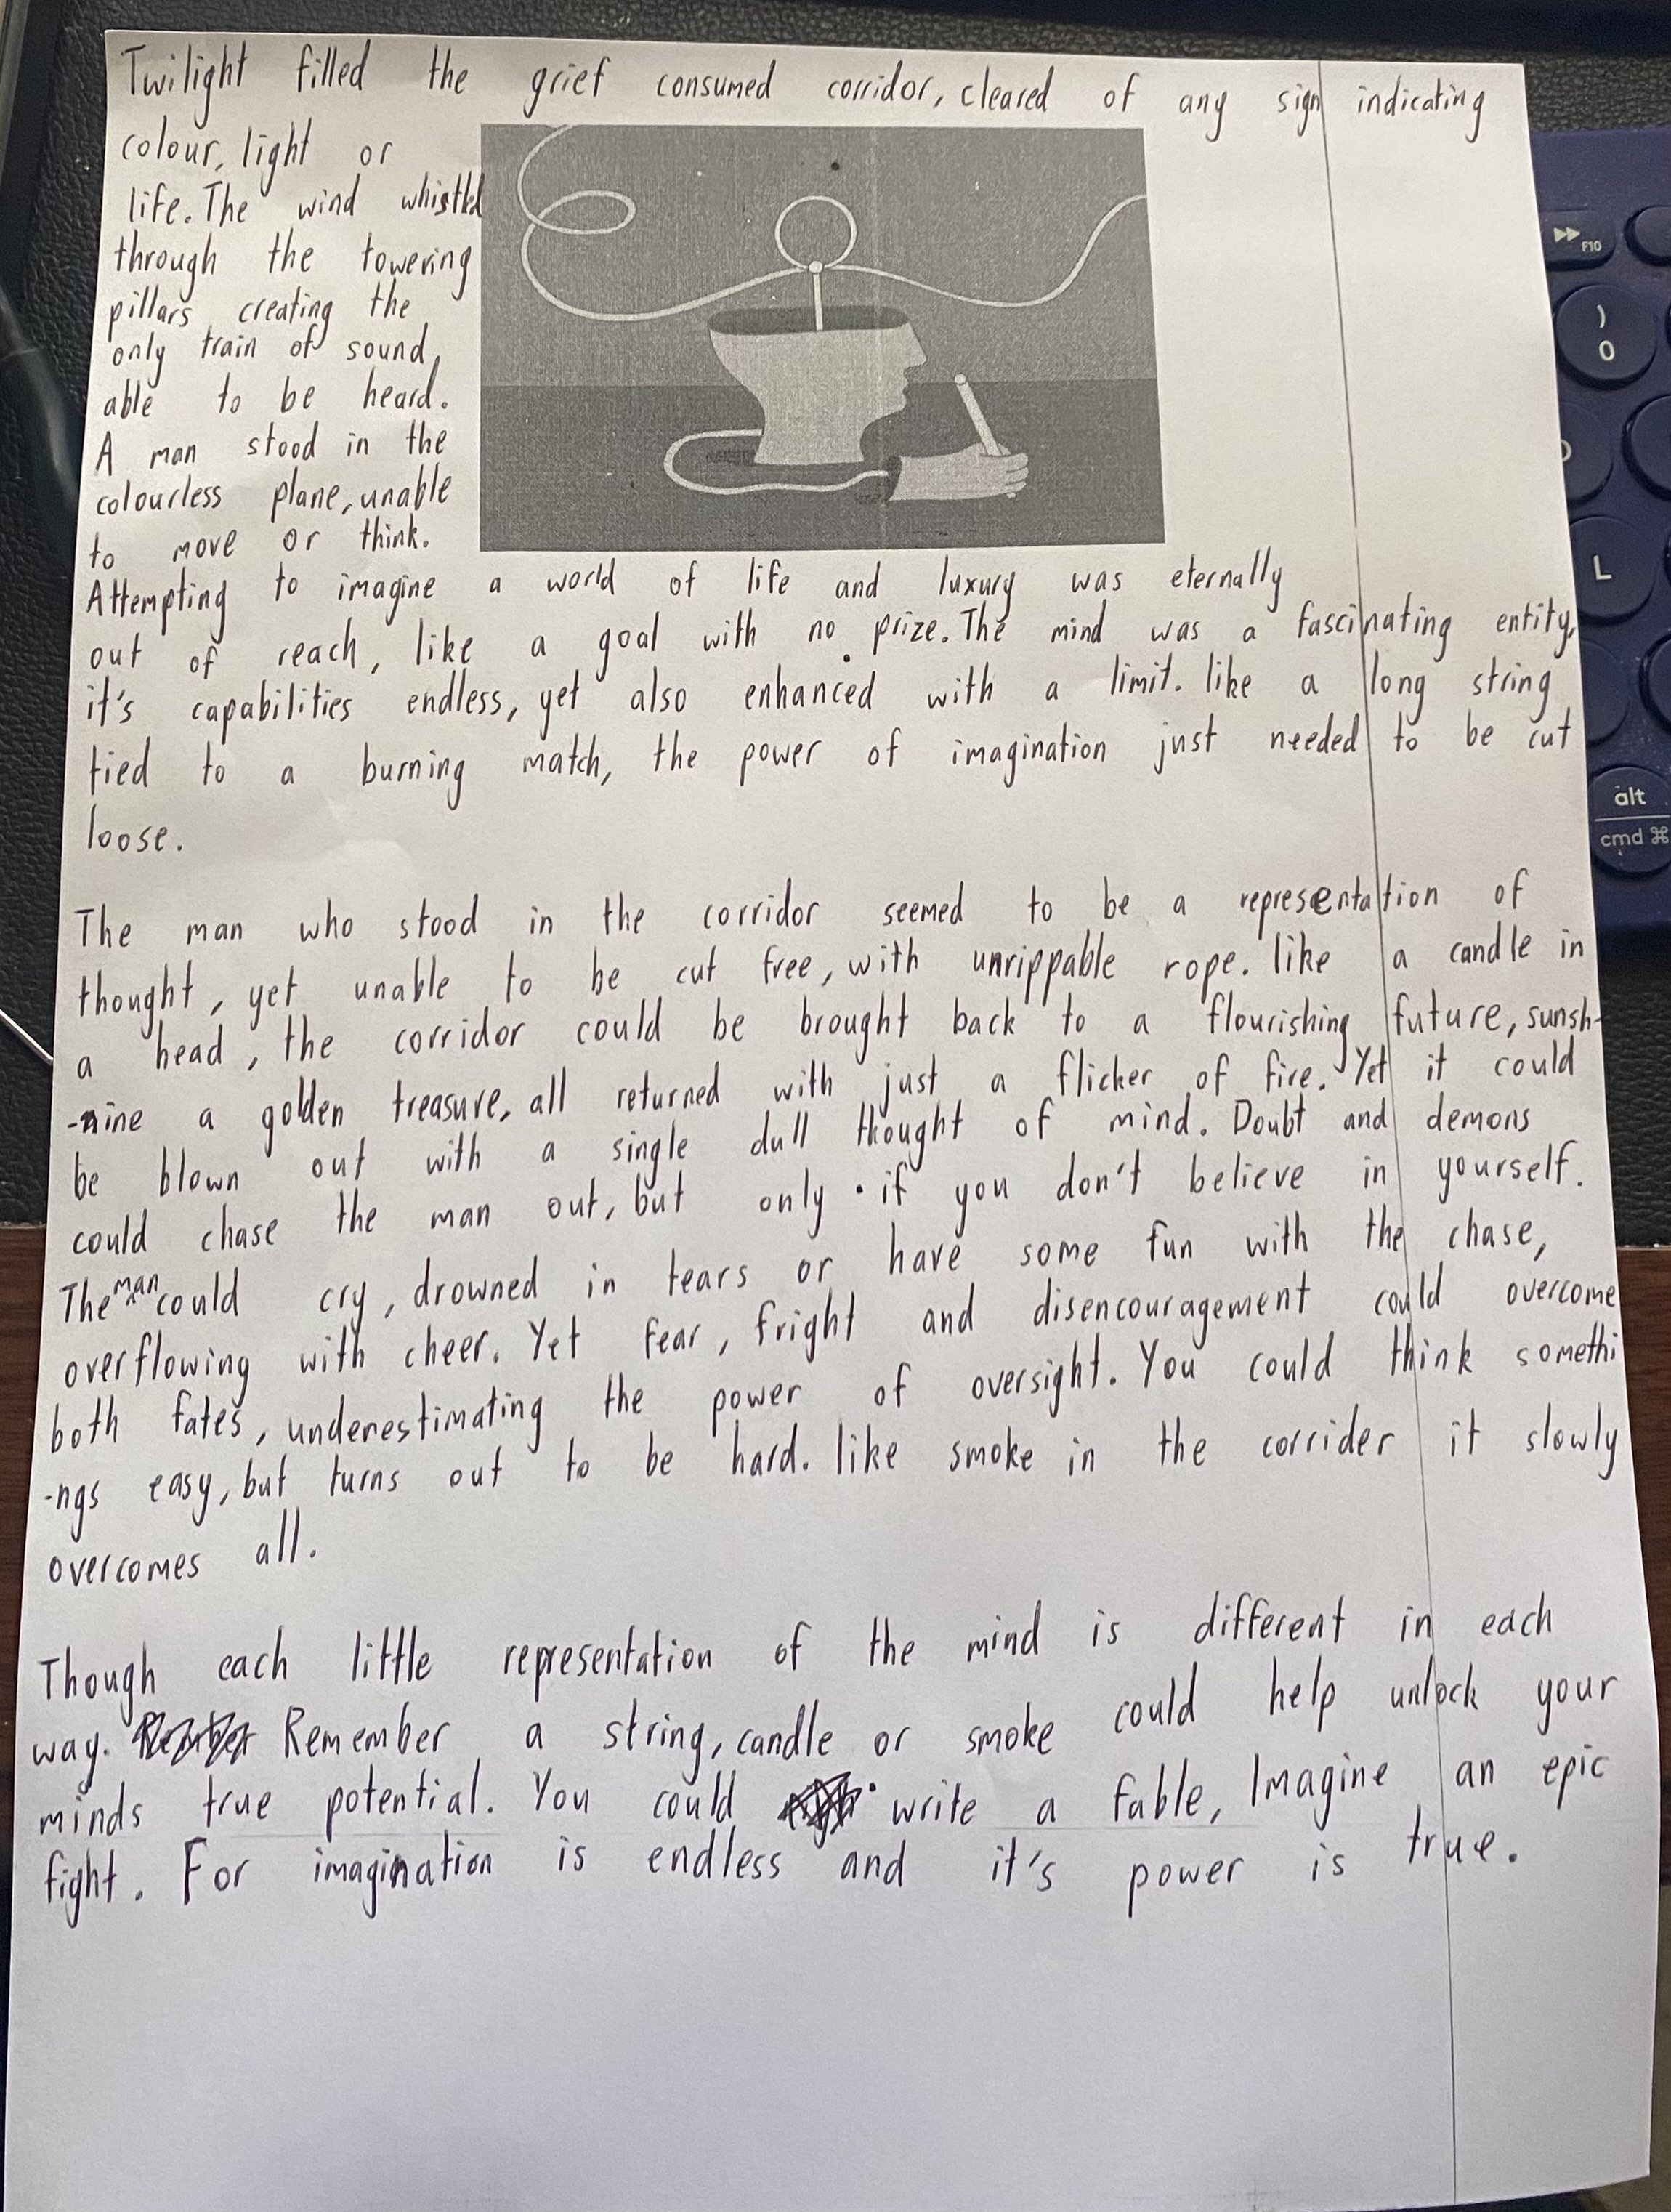 Twilight filled the grief consumed corridor, cleared of any sign indicating
colour, light or
life. The wind whistled
through the towering
pillars creating the
only train of sound,
able to be heard.
A man stood in the
colourless plane, unable
to move or think.
Attempting to imagine a world of life and luxury was eternally
out of reach, like a goal with no prize. The mind was a fascinating entity,
it's capabilities endless, yet also enhanced with a limit. like a long string
tied to a burning match, the power of imagination just needed to be cut
loose.
The man who stood in the corridor seemed to be a representation of
thought, yet unable to be cut free, with unrippable rope. like a candle in
a head, the corridor could be brought back to a flourishing future, sunsh-
-nine a golden treasure, all returned with just a flicker of fire. Yet it could
be blown out with a single dull thought of mind. Doubt and demons
could chase the man out, but only if you don't believe in yourself.
The man could cry, drowned in tears or have some fun with the chase,
overflowing with cheer. Yet fear, fright and disencouragement could overcome
both fates, underestimating the power of oversight. You could think somethi
-ngs easy, but turns out to be hard. like smoke in the corrider it slowly
overcomes all.
Though each little representation of the mind is different in each
way. Remember a string, candle or smoke could help unlock your
minds true potential. You could write a fable, Imagine an epic
fight. For imagination is endless and it's power is true.
F10
)
0
L
alt
cmd ⌘